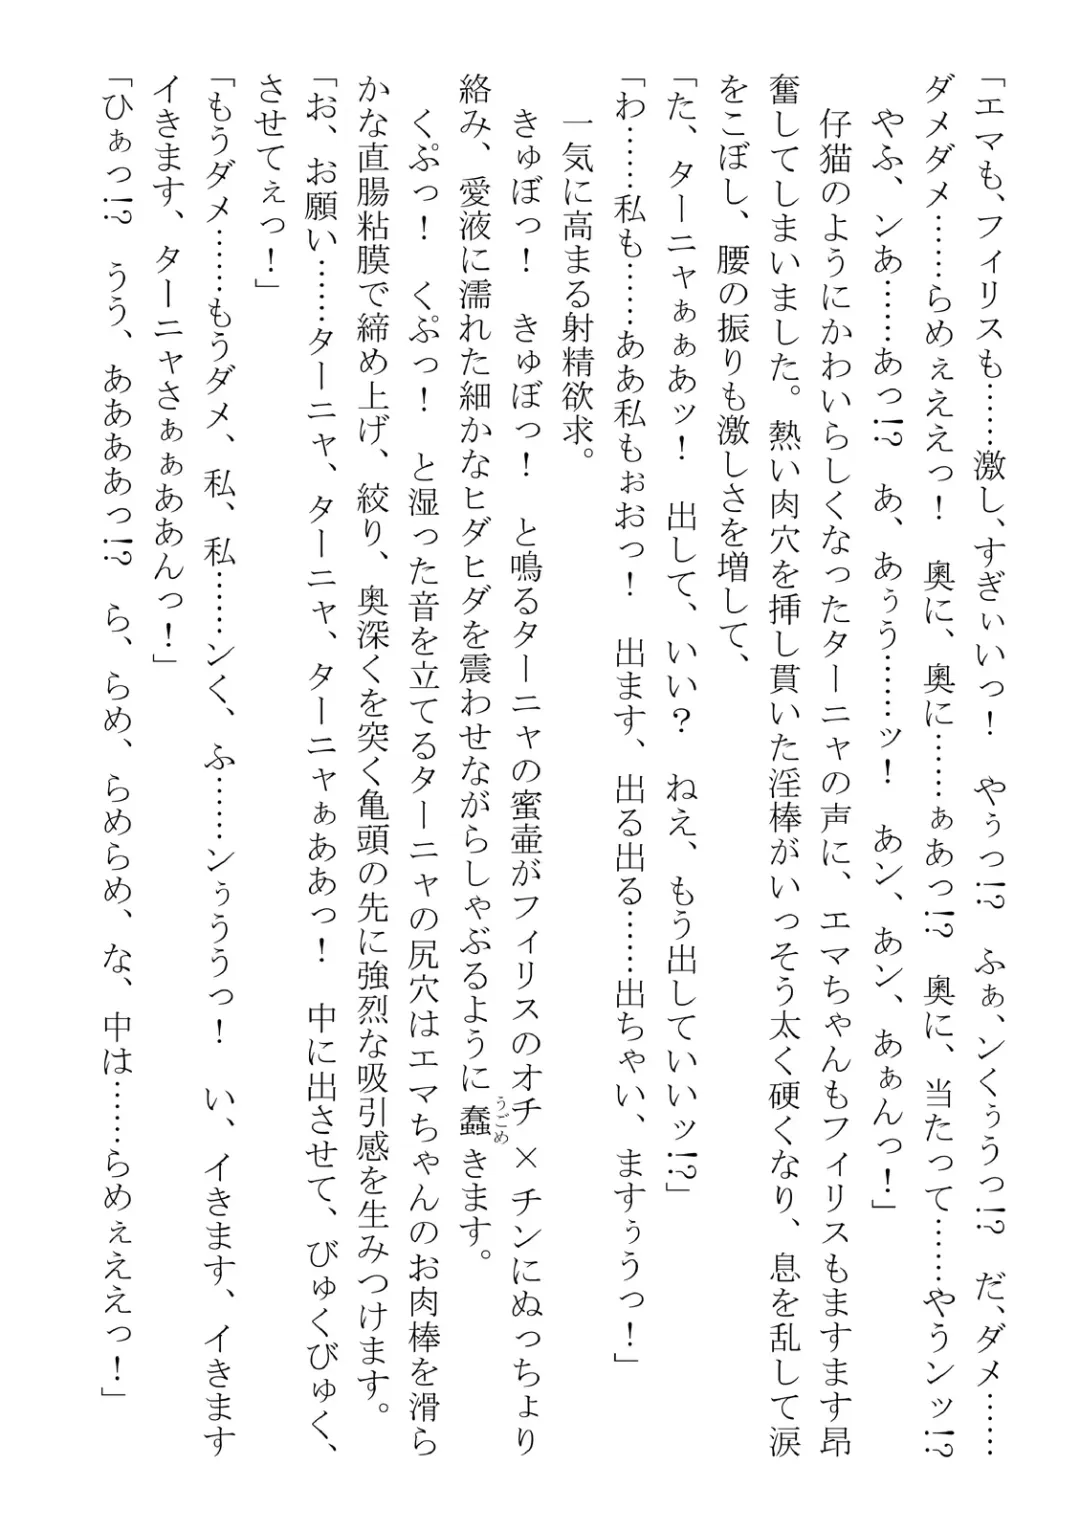 「エマも、フィリスも……激し、すぎぃいっ！　やぅっ!?　ふぁ、ンくぅうっ!?　だ、ダメ……
ダメダメ……らめぇええっ！　奥に、奥に……ぁあっ!?　奥に、当たって……やうンッ!?
やふ、ンあ……あっ!?　あ、あぅう……ッ！　あン、あン、あぁんっ！」
仔猫のようにかわいらしくなったターニャの声に、エマちゃんもフィリスもますます昂
奮してしまいました。熱い肉穴を挿し貫いた淫棒がいっそう太く硬くなり、息を乱して涙
をこぼし、腰の振りも激しさを増して、
「た、ターニャぁぁあッ！　出して、いい？　ねえ、もう出していいッ!?」
「わ……私も……ああ私もぉおっ！　出ます、出る出る……出ちゃい、ますぅうっ！」
一気に高まる射精欲求。
きゅぼっ！　きゅぼっ！　と鳴るターニャの蜜壷がフィリスのオチ×チンにぬっちょり
絡み、愛液に濡れた細かなヒダヒダを震わせながらしゃぶるように蠢（うごめ）きます。
くぷっ！　くぷっ！　と湿った音を立てるターニャの尻穴はエマちゃんのお肉棒を滑ら
かな直腸粘膜で締め上げ、絞り、奥深くを突く亀頭の先に強烈な吸引感を生みつけます。
「お、お願い……ターニャ、ターニャ、ターニャぁああっ！　中に出させて、びゅくびゅく、
させてぇっ！」
「もうダメ……もうダメ、私、私……ンく、ふ……ンぅううっ！　い、イきます、イきます
イきます、ターニャさぁぁああんっ！」
「ひぁっ!?　うう、ああああっ!?　ら、らめ、らめらめ、な、中は……らめぇええっ！」